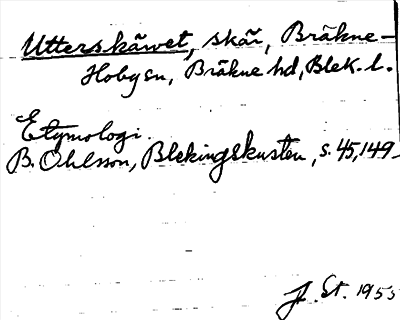 Utterskäwet, skär, Bräkne-
Hoby sn, Bräkne hd, Blek. l.
Etymologi.
B. Ohlsson, Blekingskusten, s. 45, 149
J. St. 1955